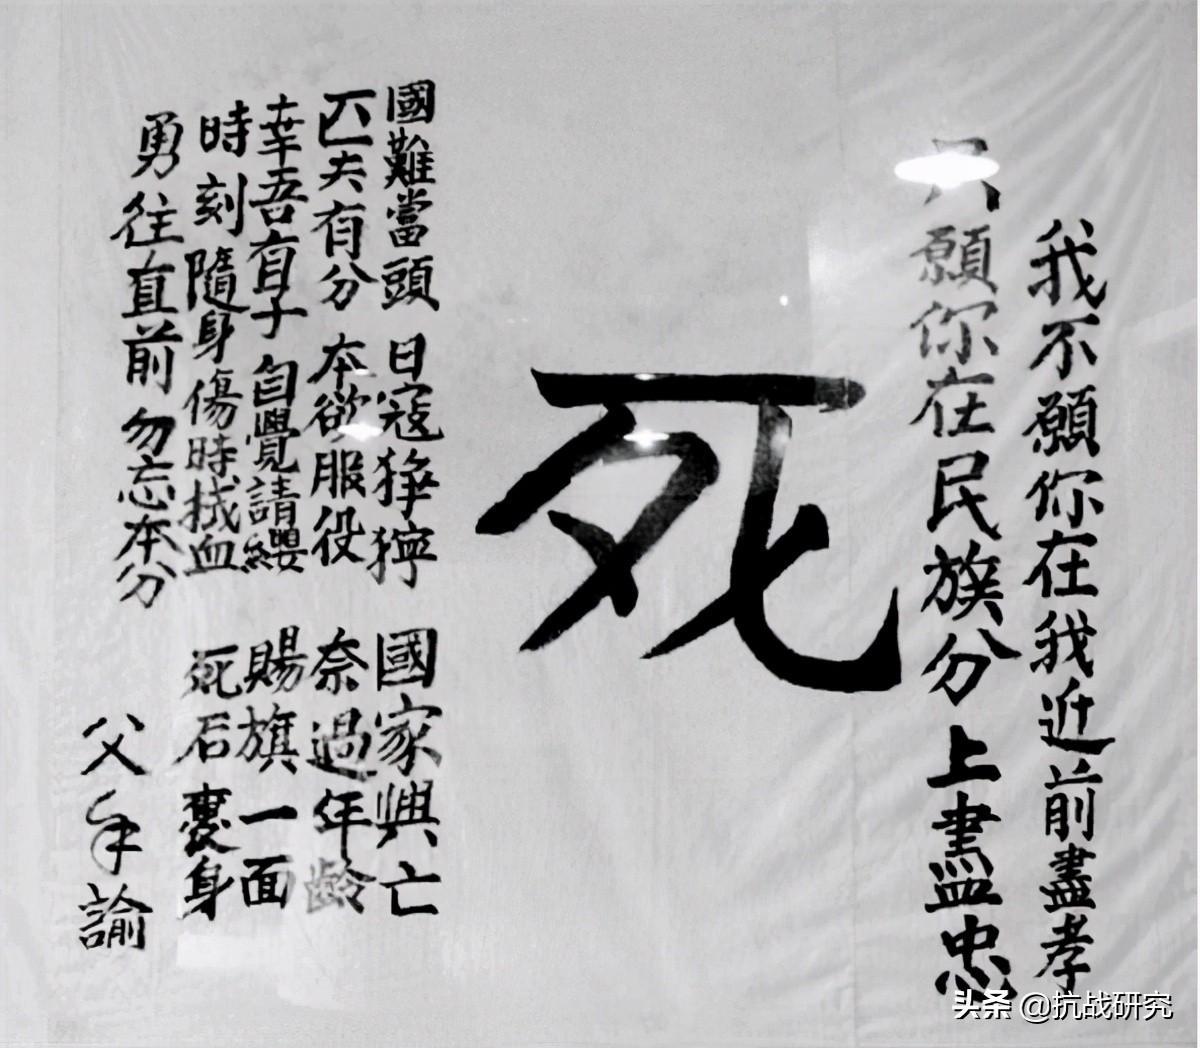 我不願你在我近前盡孝
只願你在民族分上盡忠
死
國難當頭 日寇猙獰 國家興亡
匹夫有分 本欲服役 奈過年齡
幸吾有子 自覺請纓 賜旗一面
時刻隨身 傷時拭血 死后裹身
勇往直前 勿忘本分
父手諭
头条 @抗战研究